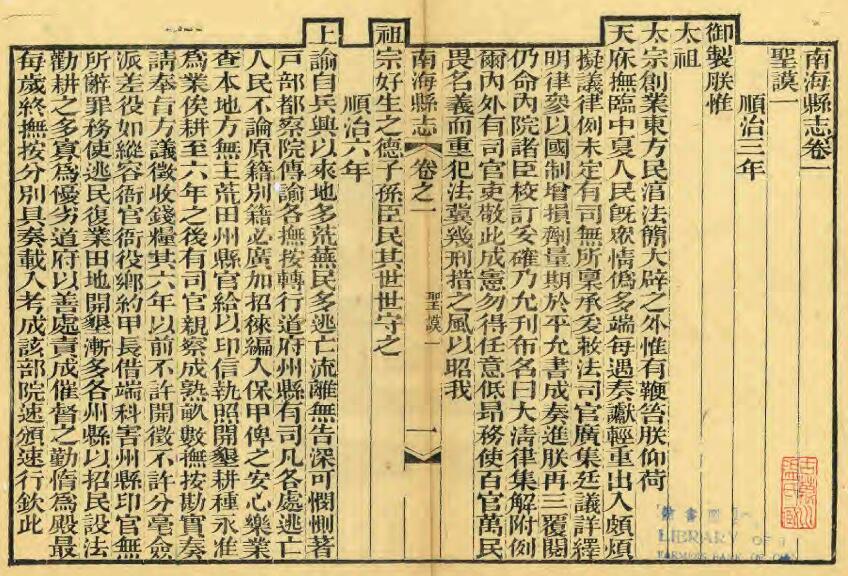 南海縣志卷一
聖謨一
順治三年
御製朕惟
太祖
太宗創業東方民淳法簡大辟之外惟有鞭笞朕仰荷
天庥撫臨中夏人民旣衆情僞多端每遇奏讞輕重出入頗煩
擬議律例未定有司無所稟承爰敕法司官廣集廷議詳繹
明律參以國制增損劑量期於平允書成奏進朕再三覆閱
仍命內院諸臣校訂妥確乃允刊布名曰大淸律集解附例
爾內外有司官吏敬此成憲勿得任意低昻務使百官萬民
畏名義而重犯法冀幾刑措之風以昭我
南海縣志 卷之一 聖謨一 一
祖宗好生之德子孫臣民其世世守之
順治六年
上諭自兵興以來地多荒蕪民多逃亡流離無告深可憫惻著
戸部都察院傳諭各撫按轉行道府州縣有司凡各處逃亡
人民不論原籍別籍必廣加招徠編入保甲俾之安心樂業
查本地方無主荒田州縣官給以印信執照開墾耕種永准
爲業俟耕至六年之後有司官親察成熟畝數撫按勘實奏
請奉旨方議徵收錢糧其六年以前不許開徵不許分毫僉
派差役如縱容衙官衙役鄉約甲長借端科害州縣印官無
所辭罪務使逃民復業田地開墾漸多各州縣以招民設法
勸耕之多寡爲優劣道府以善處責成催督之勤惰爲殿最
每歲終撫按分別具奏載入考成該部院速頒速行欽此
LIBRARY OF